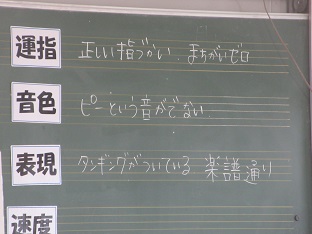 運指 正しい指づかい、まちがいゼロ
音色 ピーという音がでない
表現 タンギングがついている 楽譜通り
速度